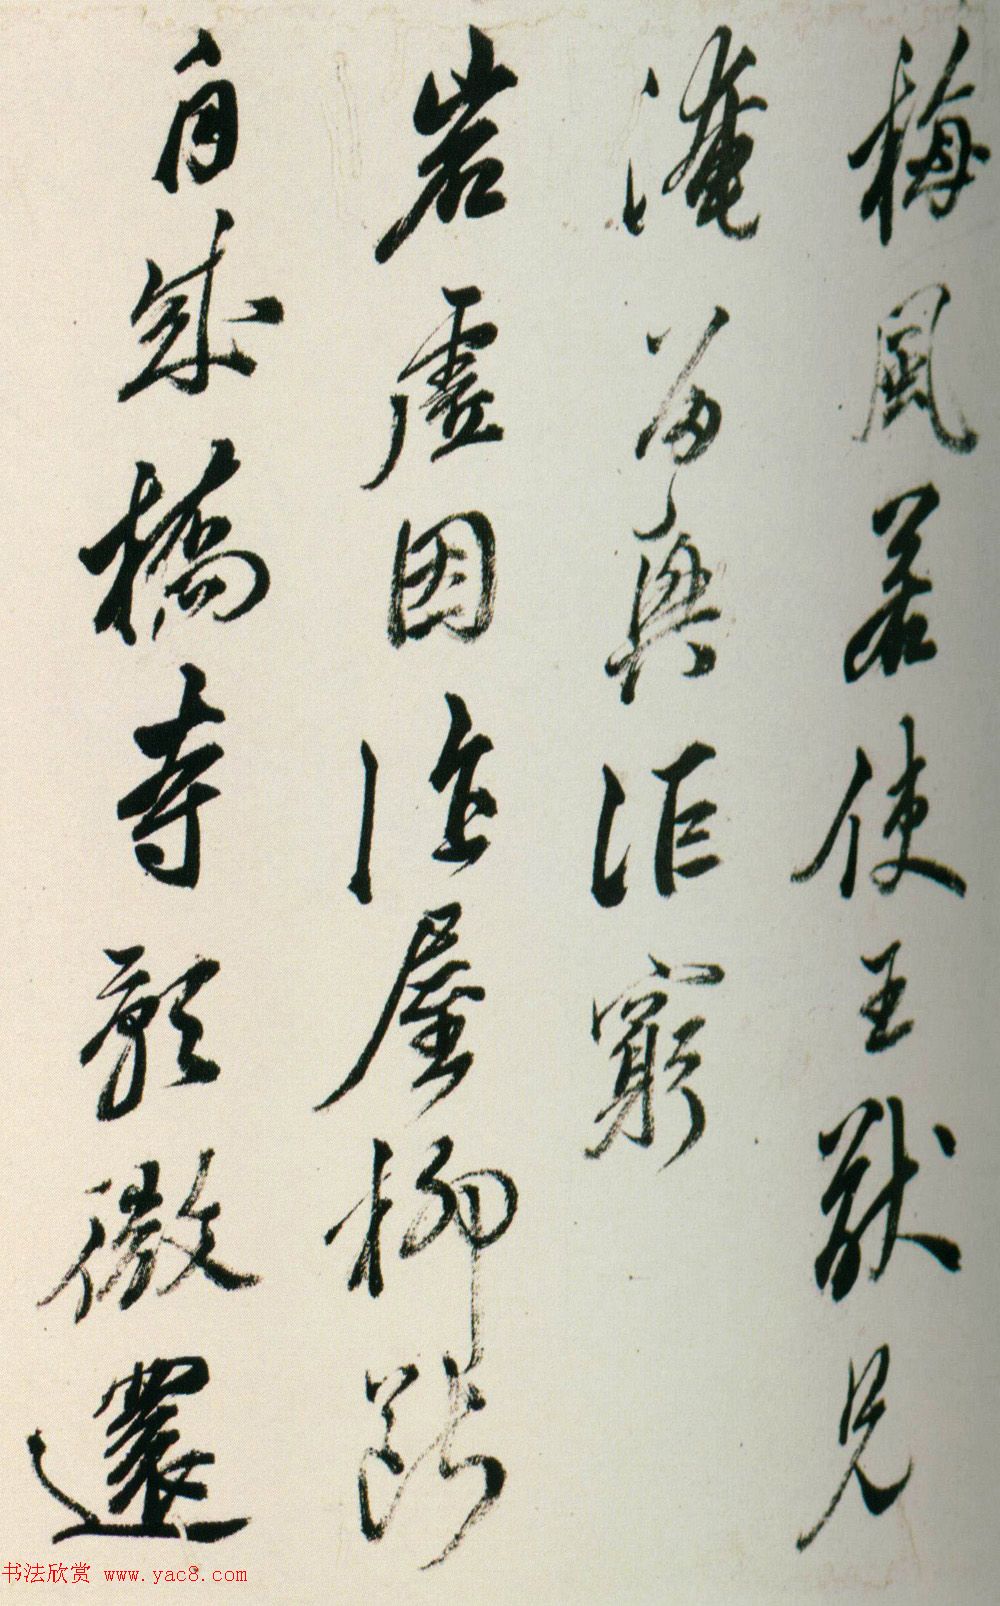 梅風若使王猷見
淹留興詎窮
岩虛因作屋柳斷
自成橋寺影微還
书法欣赏 www.yac8.com